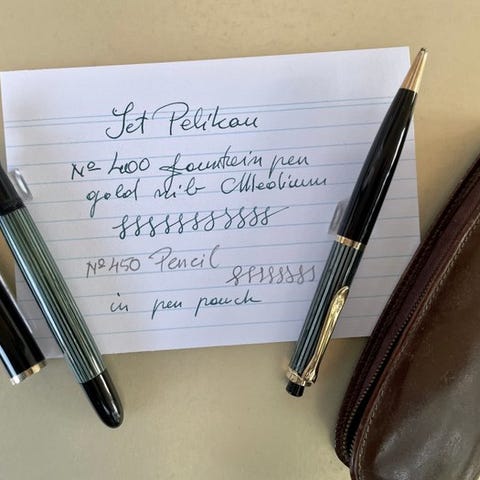 Set Pelikan
Nº 400 fountein pen
gold nib Medium
Nº 450 Pencil
in pen pouch